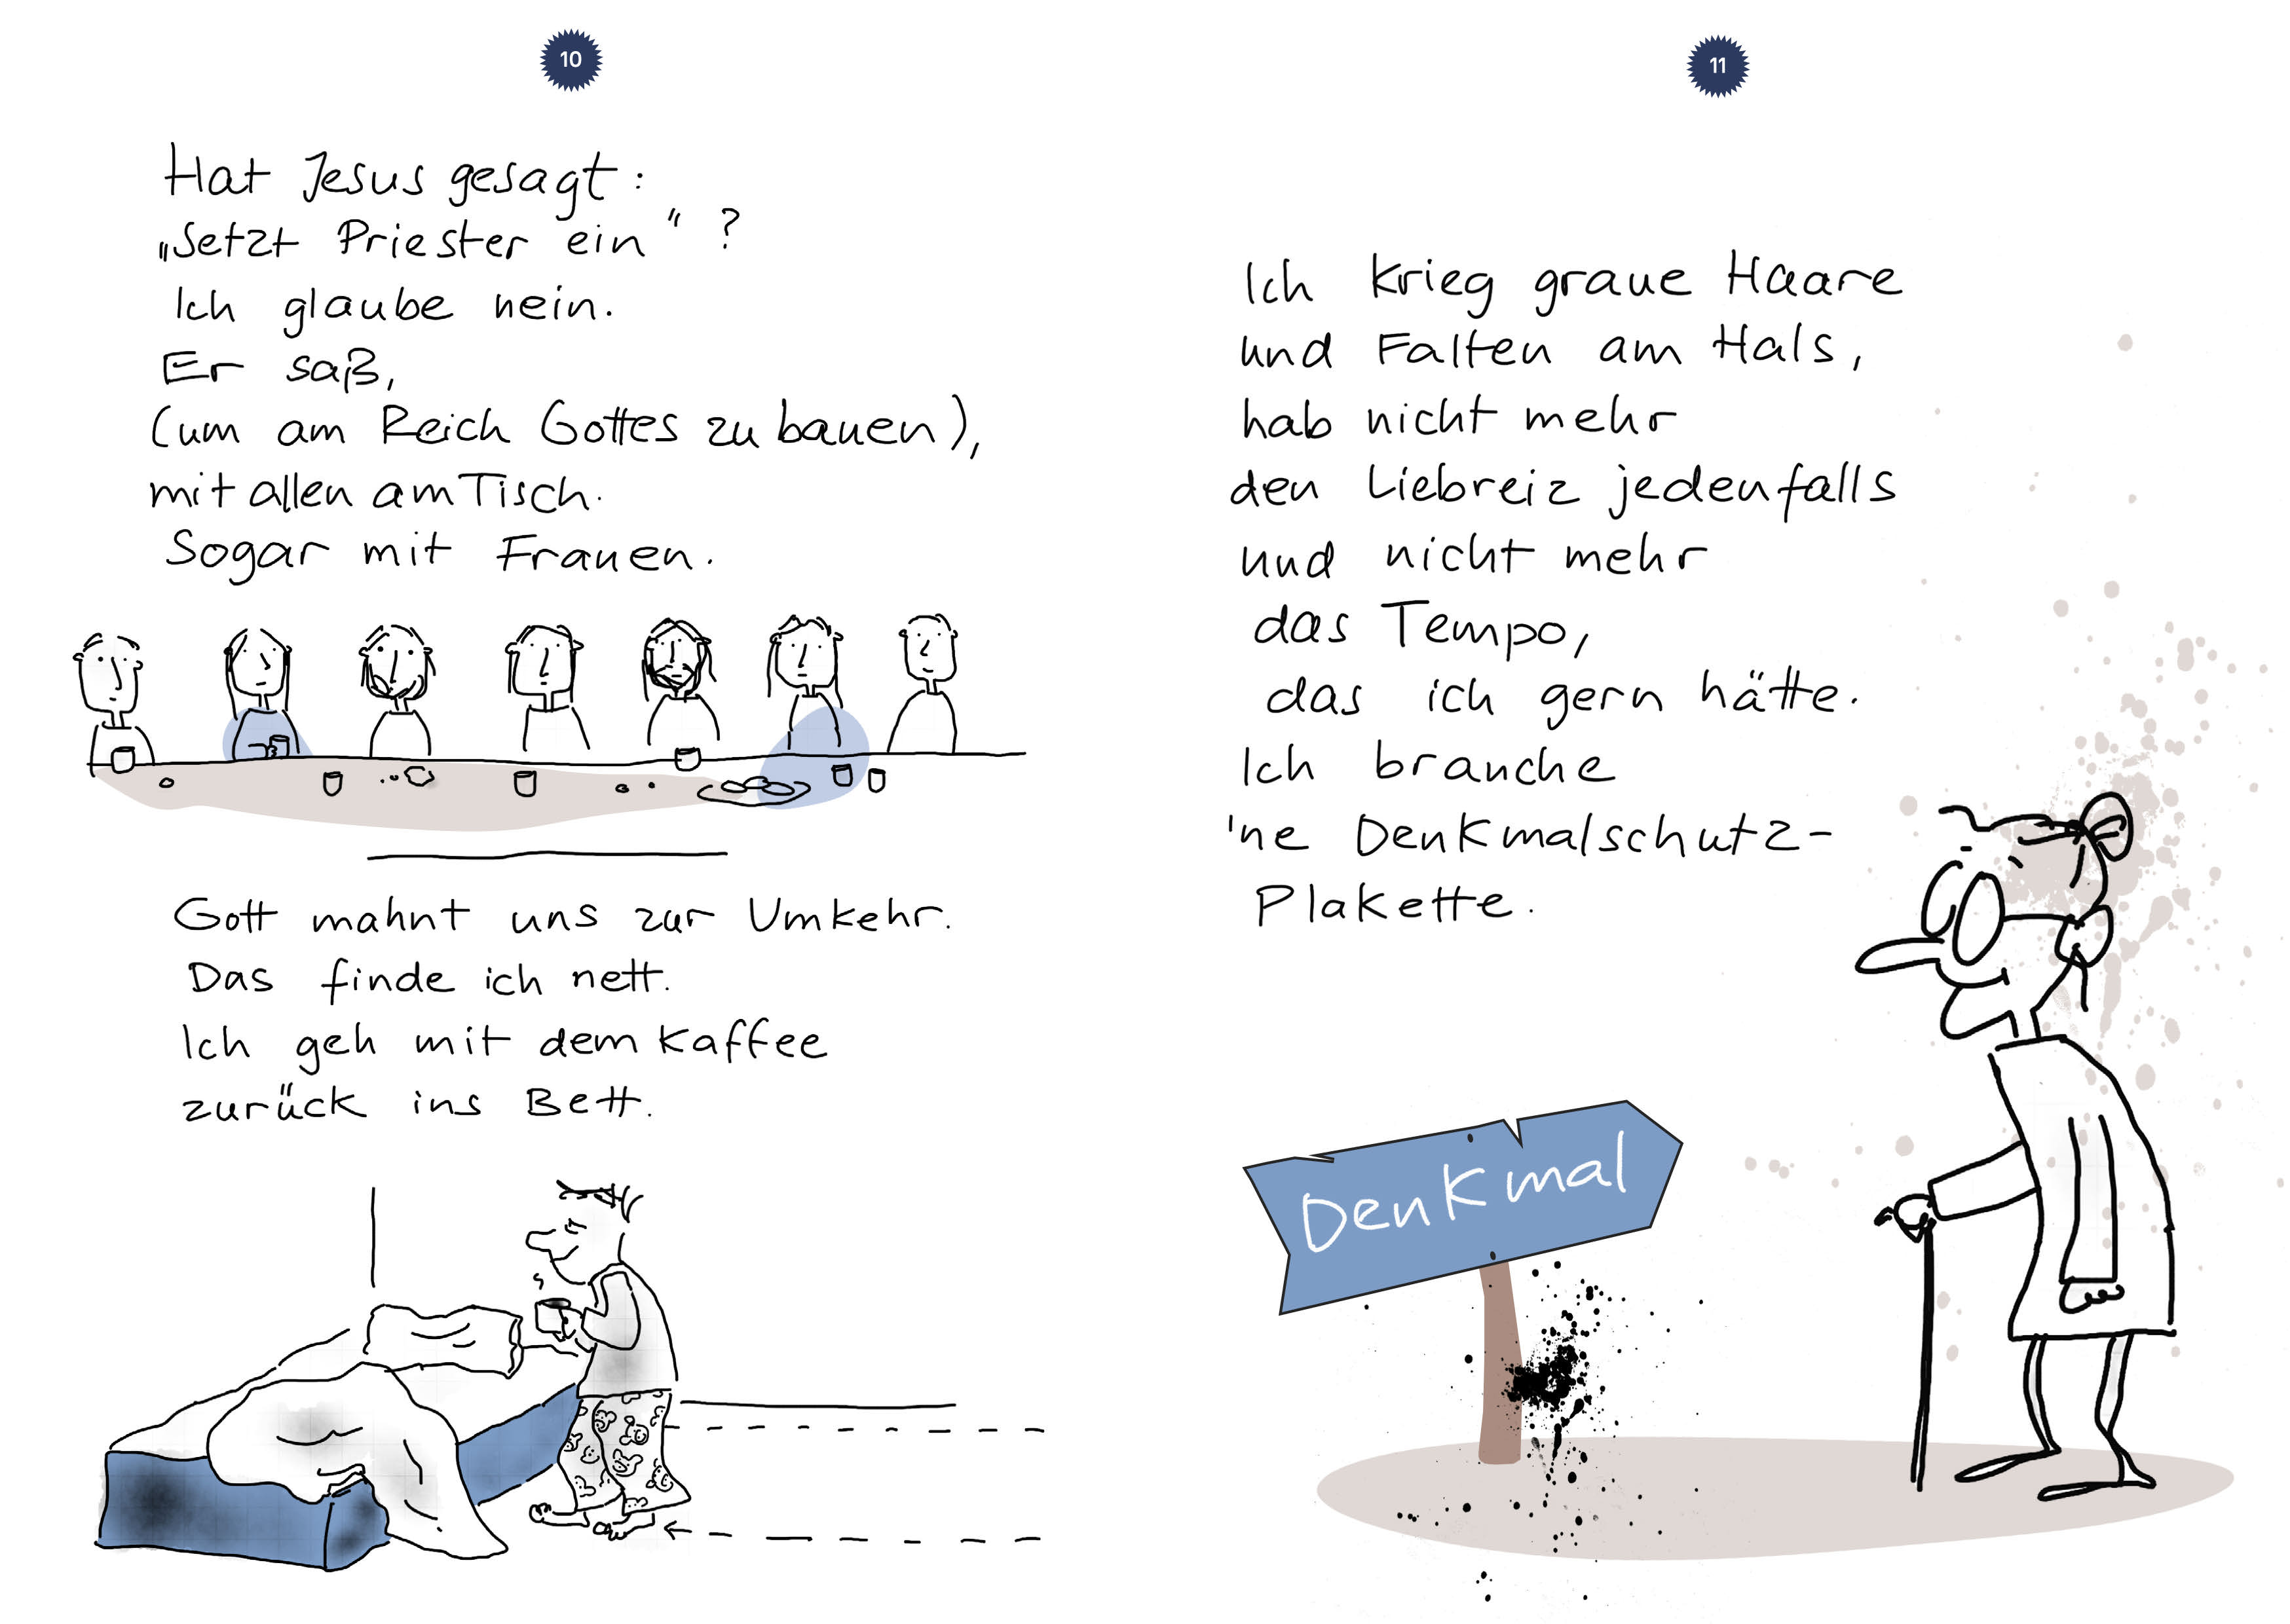 10
Hat Jesus gesagt:
„Setzt Priester ein“ ?
Ich glaube nein.
Er saß,
(um am Reich Gottes zu bauen),
mit allen am Tisch.
Sogar mit Frauen.
Gott mahnt uns zur Umkehr.
Das finde ich nett.
Ich geh mit dem Kaffee
zurück ins Bett.
11
Ich krieg graue Haare
und Falten am Hals,
hab nicht mehr
den Liebreiz jedenfalls
und nicht mehr
das Tempo,
das ich gern hätte.
Ich brauche
'ne Denkmalschutz-
Plakette.
Denkmal